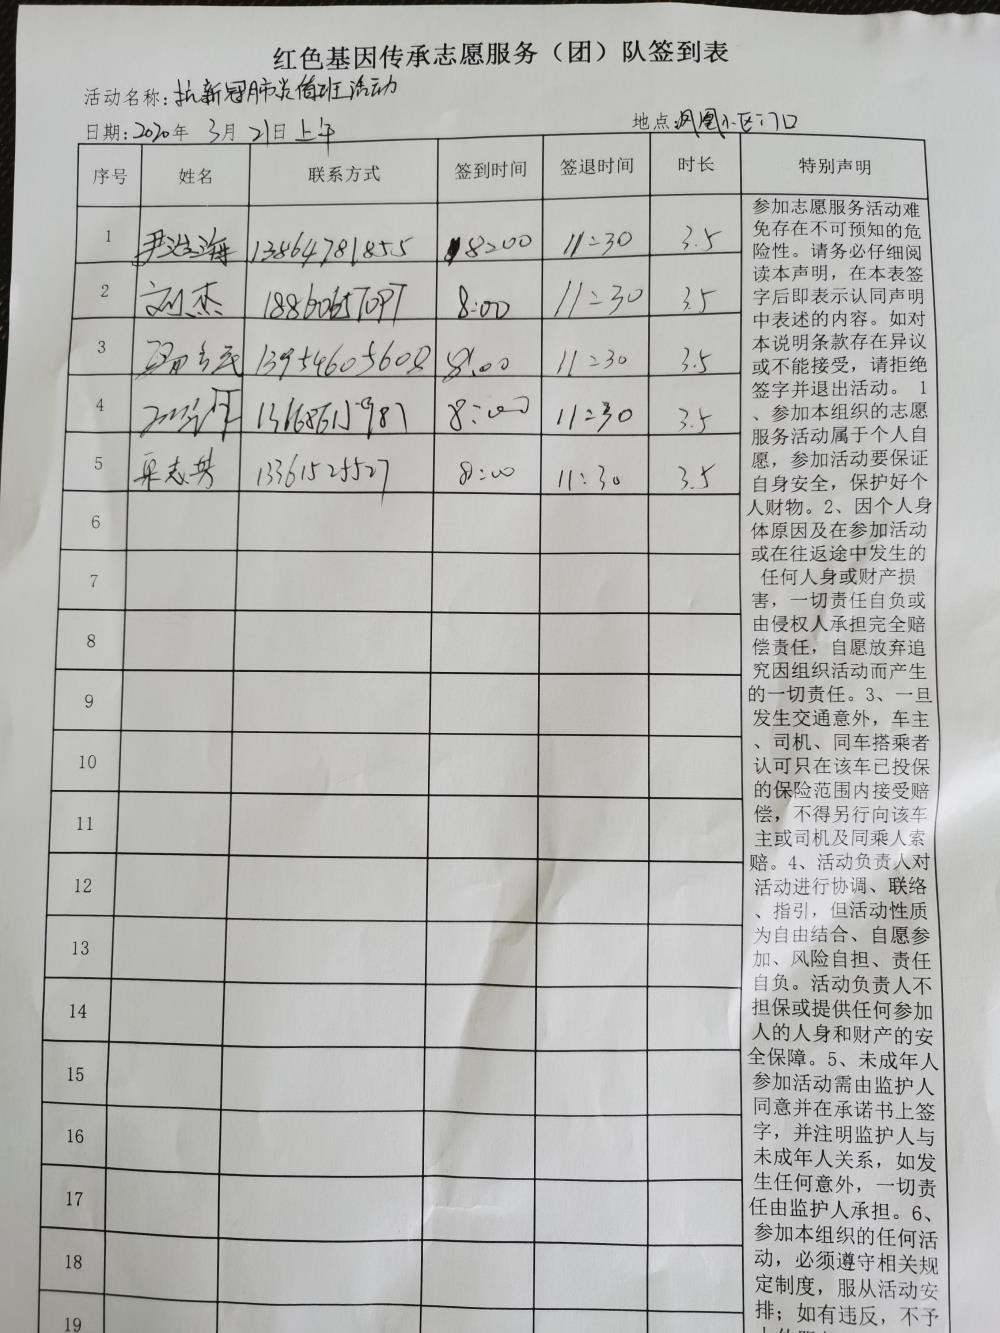 红色基因传承志愿服务（团）队签到表
活动名称：抗新冠肺炎值班活动
日期：2020年 3月 21日 上午 地点：凤凰小区门口
序号 姓名 联系方式 签到时间 签退时间 时长 特别声明
1 尹海 13864781855 8:00 11:30 3.5
2 刘杰 8:00 11:30 3.5
3 13954605608 8:00 11:30 3.5
4 8:00 11:30 3.5
5 志 13361525527 8:00 11:30 3.5
6
7
8
9
10
11
12
13
14
15
16
17
18
19
参加志愿服务活动难
免存在不可预知的危
险性。请务必仔细阅
读本声明，在本表签
字后即表示认同声明
中表述的内容。如对
本说明条款存在异议
或不能接受，请拒绝
签字并退出活动。 1
、参加本组织的志愿
服务活动属于个人自
愿，参加活动要保证
自身安全，保护好个
人财物。2、因个人身
体原因及在参加活动
或在往返途中发生的
任何人身或财产损
害，一切责任自负或
由侵权人承担完全赔
偿责任，自愿放弃追
究因组织活动而产生
的一切责任。3、一旦
发生交通意外，车主
、司机、同车搭乘者
认可只在该车已投保
的保险范围内接受赔
偿，不得另行向该车
主或司机及同乘人索
赔。4、活动负责人对
活动进行协调、联络
、指引，但活动性质
为自由结合、自愿参
加、风险自担、责任
自负。活动负责人不
担保或提供任何参加
人的人身和财产的安
全保障。5、未成年人
参加活动需由监护人
同意并在承诺书上签
字，并注明监护人与
未成年人关系，如发
生任何意外，一切责
任由监护人承担。6、
参加本组织的任何活
动，必须遵守相关规
定制度，服从活动安
排；如有违反，不予